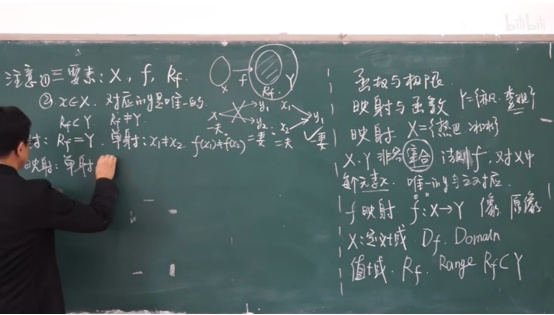 bilibili
注意①三要素: X, f, Rf.
② x∈X. 对应的y是唯一的.
Rf⊂Y Rf≠Y
X f Rf Y
射: Rf=Y. 单射: x₁≠x₂. f(x₁)≠f(x₂)
映射: 单射
x y₁ y₂
x₁ x₂ y₁
一夫二妻 二夫一妻
函数与极限
映射与函数
映射 X={
X.Y 非空集合 法则f, 对X中
每个元素x. 唯一的y与之对应.
f 映射 f: X→Y 像 原像
X: 定义域. Df. Domain
值域. Rf. Range Rf⊂Y